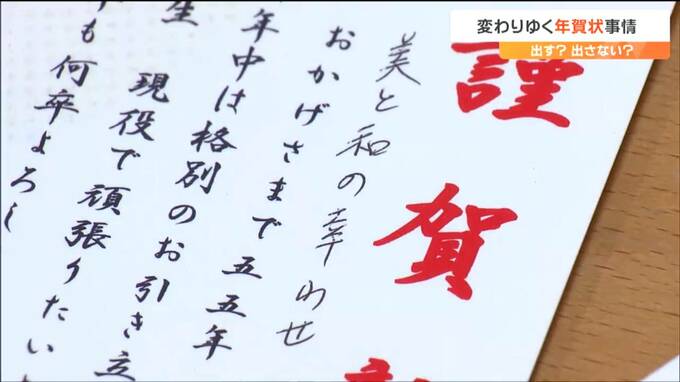 変わりゆく年賀状事情
出す?出さない?
謹賀
美と和の幸わせ
おかげさまで五五年
年中は格別のお引き立
生 現役で頑張りたい
も何卒よろし